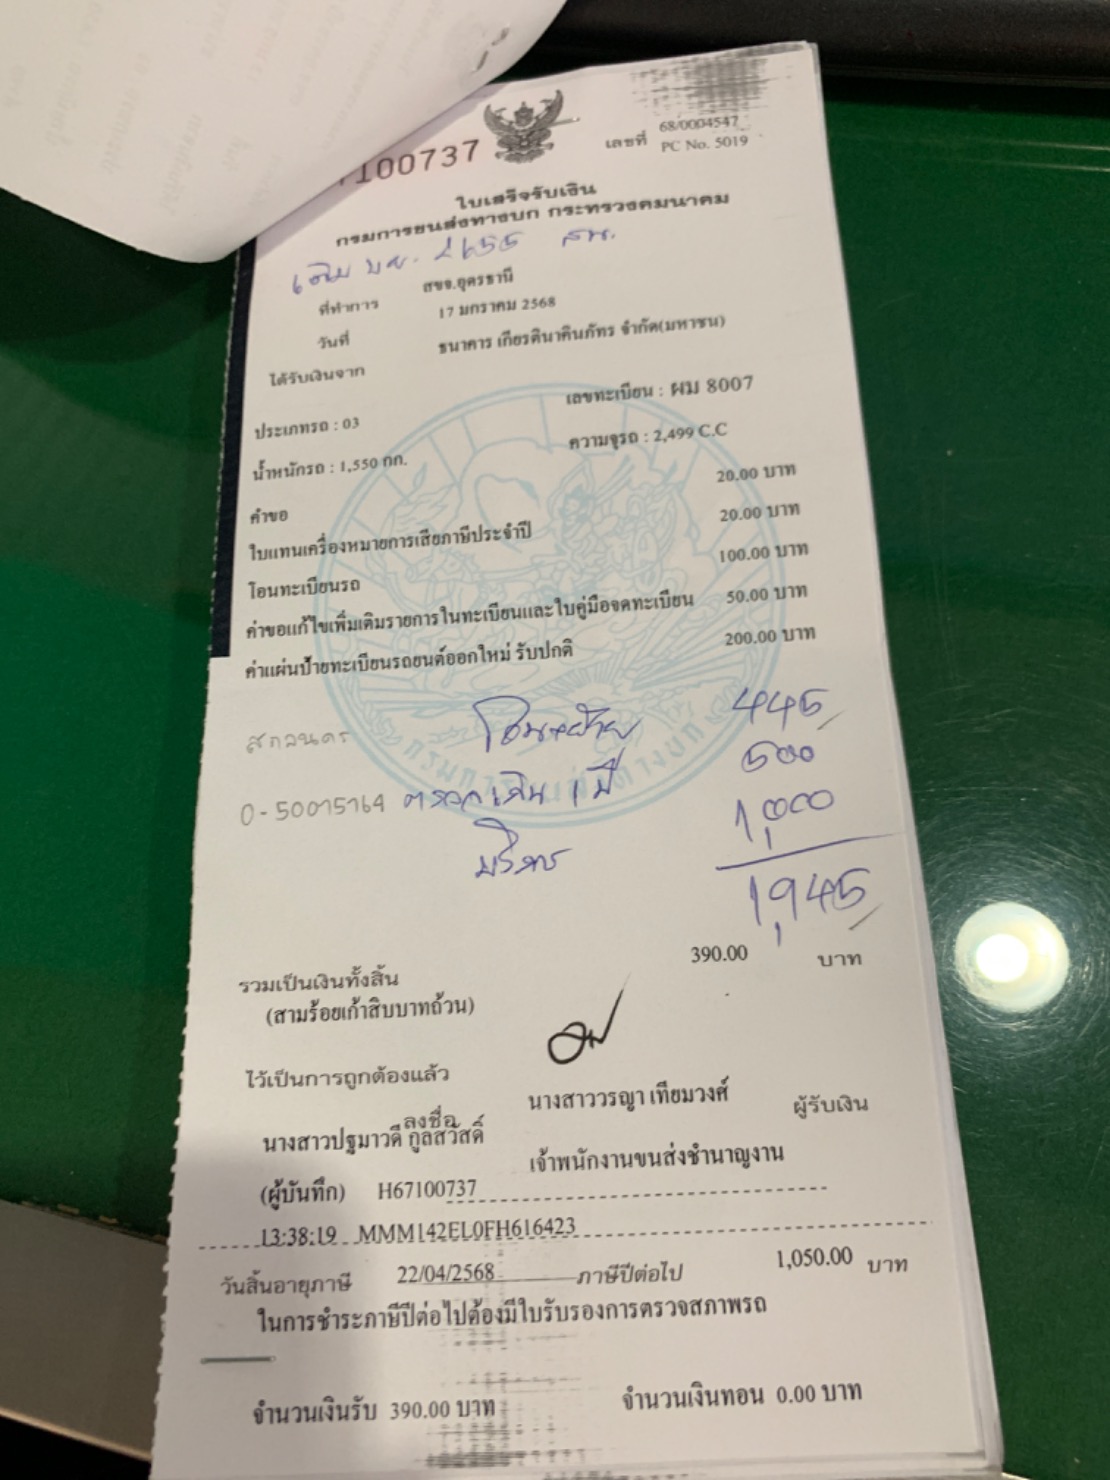 100737
เลขที่ 68/0004547
PC No. 5019
ใบเสร็จรับเงิน
กรมการขนส่งทางบก กระทรวงคมนาคม
เดิม บย. 2655 สน.
ที่ทำการ สขจ.อุดรธานี
วันที่ 17 มกราคม 2568
ได้รับเงินจาก ธนาคาร เกียรตินาคินภัทร จำกัด(มหาชน)
ประเภทรถ : 03 เลขทะเบียน : ผม 8007
น้ำหนักรถ : 1,550 กก. ความจุรถ : 2,499 C.C
คำขอ 20.00 บาท
ใบแทนเครื่องหมายการเสียภาษีประจำปี 20.00 บาท
โอนทะเบียนรถ 100.00 บาท
ค่าขอแก้ไขเพิ่มเติมรายการในทะเบียนและใบคู่มือจดทะเบียน 50.00 บาท
ค่าแผ่นป้ายทะเบียนรถยนต์ออกใหม่ รับปกติ 200.00 บาท
สกลนคร โอน+ย้าย 445
0-50015764 ตรวจเดิน 1 ปี 500
บริการ 1,000
1,945
รวมเป็นเงินทั้งสิ้น 390.00 บาท
(สามร้อยเก้าสิบบาทถ้วน)
ไว้เป็นการถูกต้องแล้ว
ลงชื่อ นางสาววรญา เทียมวงศ์ ผู้รับเงิน
นางสาวปฐมาวดี กูลสวัสดิ์ เจ้าพนักงานขนส่งชำนาญงาน
(ผู้บันทึก) H67100737
13:38:19 MMM142EL0FH616423
วันสิ้นอายุภาษี 22/04/2568 ภาษีปีต่อไป 1,050.00 บาท
ในการชำระภาษีปีต่อไปต้องมีใบรับรองการตรวจสภาพรถ
จำนวนเงินรับ 390.00 บาท จำนวนเงินทอน 0.00 บาท